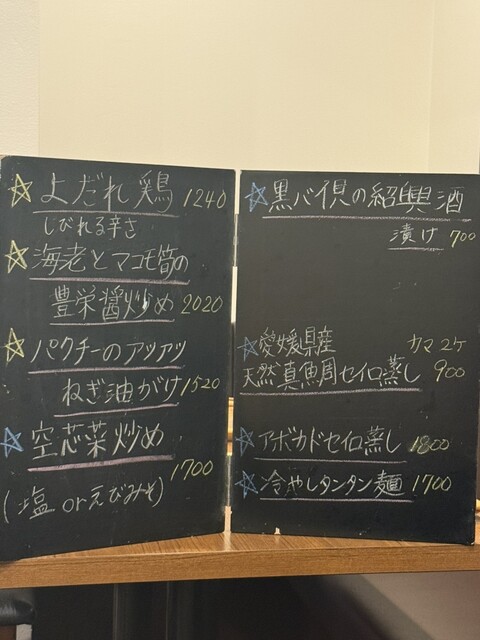 ☆よだれ鶏 1240
しびれる辛さ
☆海老とマコモ筍の
豊栄醤炒め 2020
☆パクチーのアツアツ
ねぎ油がけ 1520
☆空芯菜炒め
1700
(塩 or えびみそ)
☆黒バイ貝の紹興酒
漬け 700
☆愛媛県産 カマ 2ケ
天然真魚周セイロ蒸し 900
☆アボカドセイロ蒸し 1800
☆冷やしタンタン麺 1700